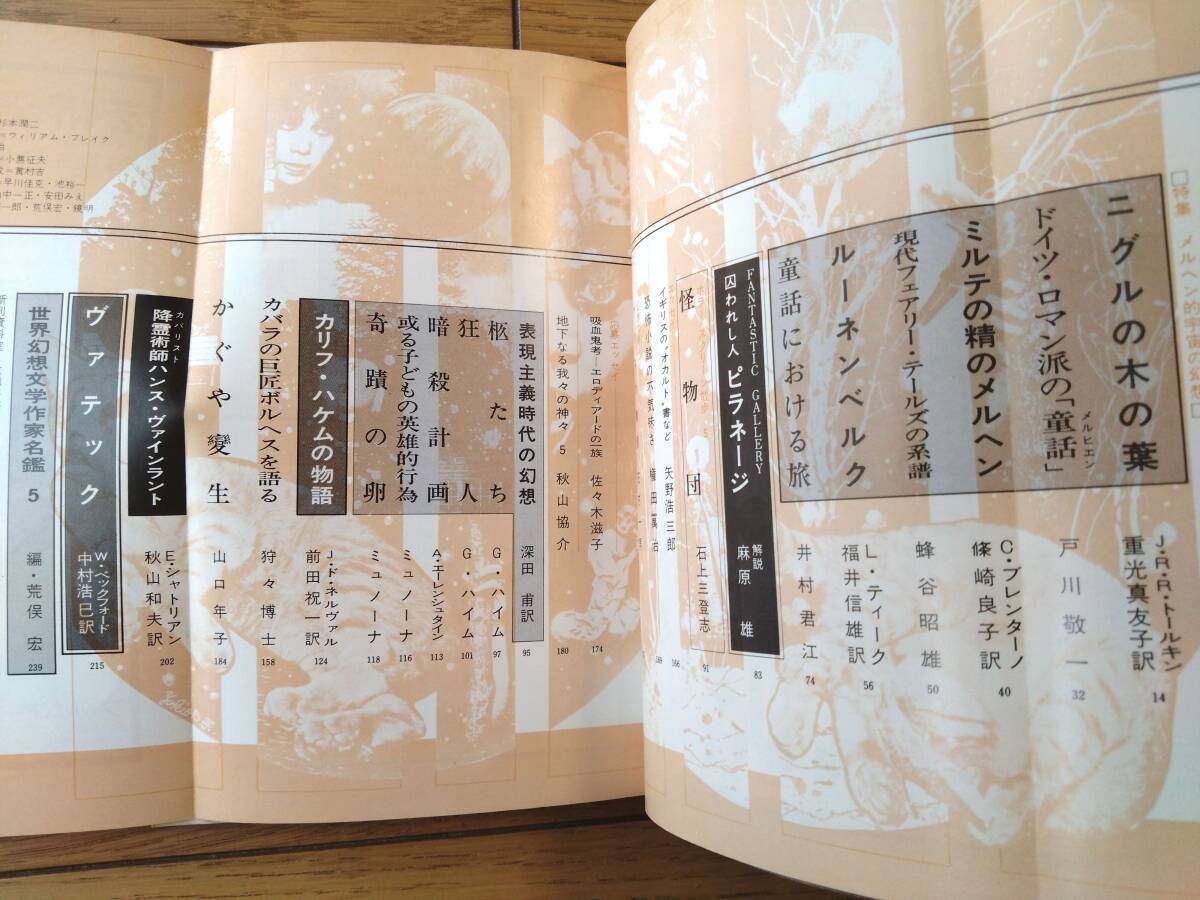 □特集 メルヘン的宇宙の幻
ニグルの木の葉
J・R・R・トールキン
重光真友子訳
14
ドイツ・ロマン派の「童話」
メルヒェン
戸川敬一
32
ミルテの精のメルヘン
C・ブレンターノ
篠崎良子訳
40
現代フェアリー・テールズの系譜
蜂谷昭雄
50
ルーネンベルク
L・ティーク
福井信雄訳
56
童話における旅
井村君江
74
FANTASTIC GALLERY
囚われし人 ピラネージ
解説
麻原 雄
83
怪物団
石上三登志
91
イギリスの"オカルト"書など
矢野浩三郎
166
恐怖小説の不気味さ
権田萬治
169
吸血鬼考―エロディアードの一族
佐々木滋子
174
地下なる我々の神々 5
秋山協介
180
表現主義時代の幻想
深田 甫訳
95
柩たち
G・ハイム
97
狂人
G・ハイム
101
暗殺計画
A・エーレンシュタイン
113
或る子どもの英雄的行為
ミュノーナ
116
奇蹟の卵
ミュノーナ
118
カリフ・ハケムの物語
J・ド・ネルヴァル
前田祝一訳
124
カバラの巨匠ボルヘスを語る
狩々博士
158
かぐや變生
山口年子
184
カバリスト
降霊術師ハンス・ヴァインラント
E・シャトリアン
秋山和夫訳
202
ヴァテック
W・ベックフォード
中村浩巳訳
215
世界幻想文学作家名鑑 5
編・荒俣 宏
239
杉本潤二
=ウィリアム・ブレイク
=小悪征夫
=實村吉
=早川佳克・池裕一
中一正・安田みえ
一郎・荒俣宏・鏡明